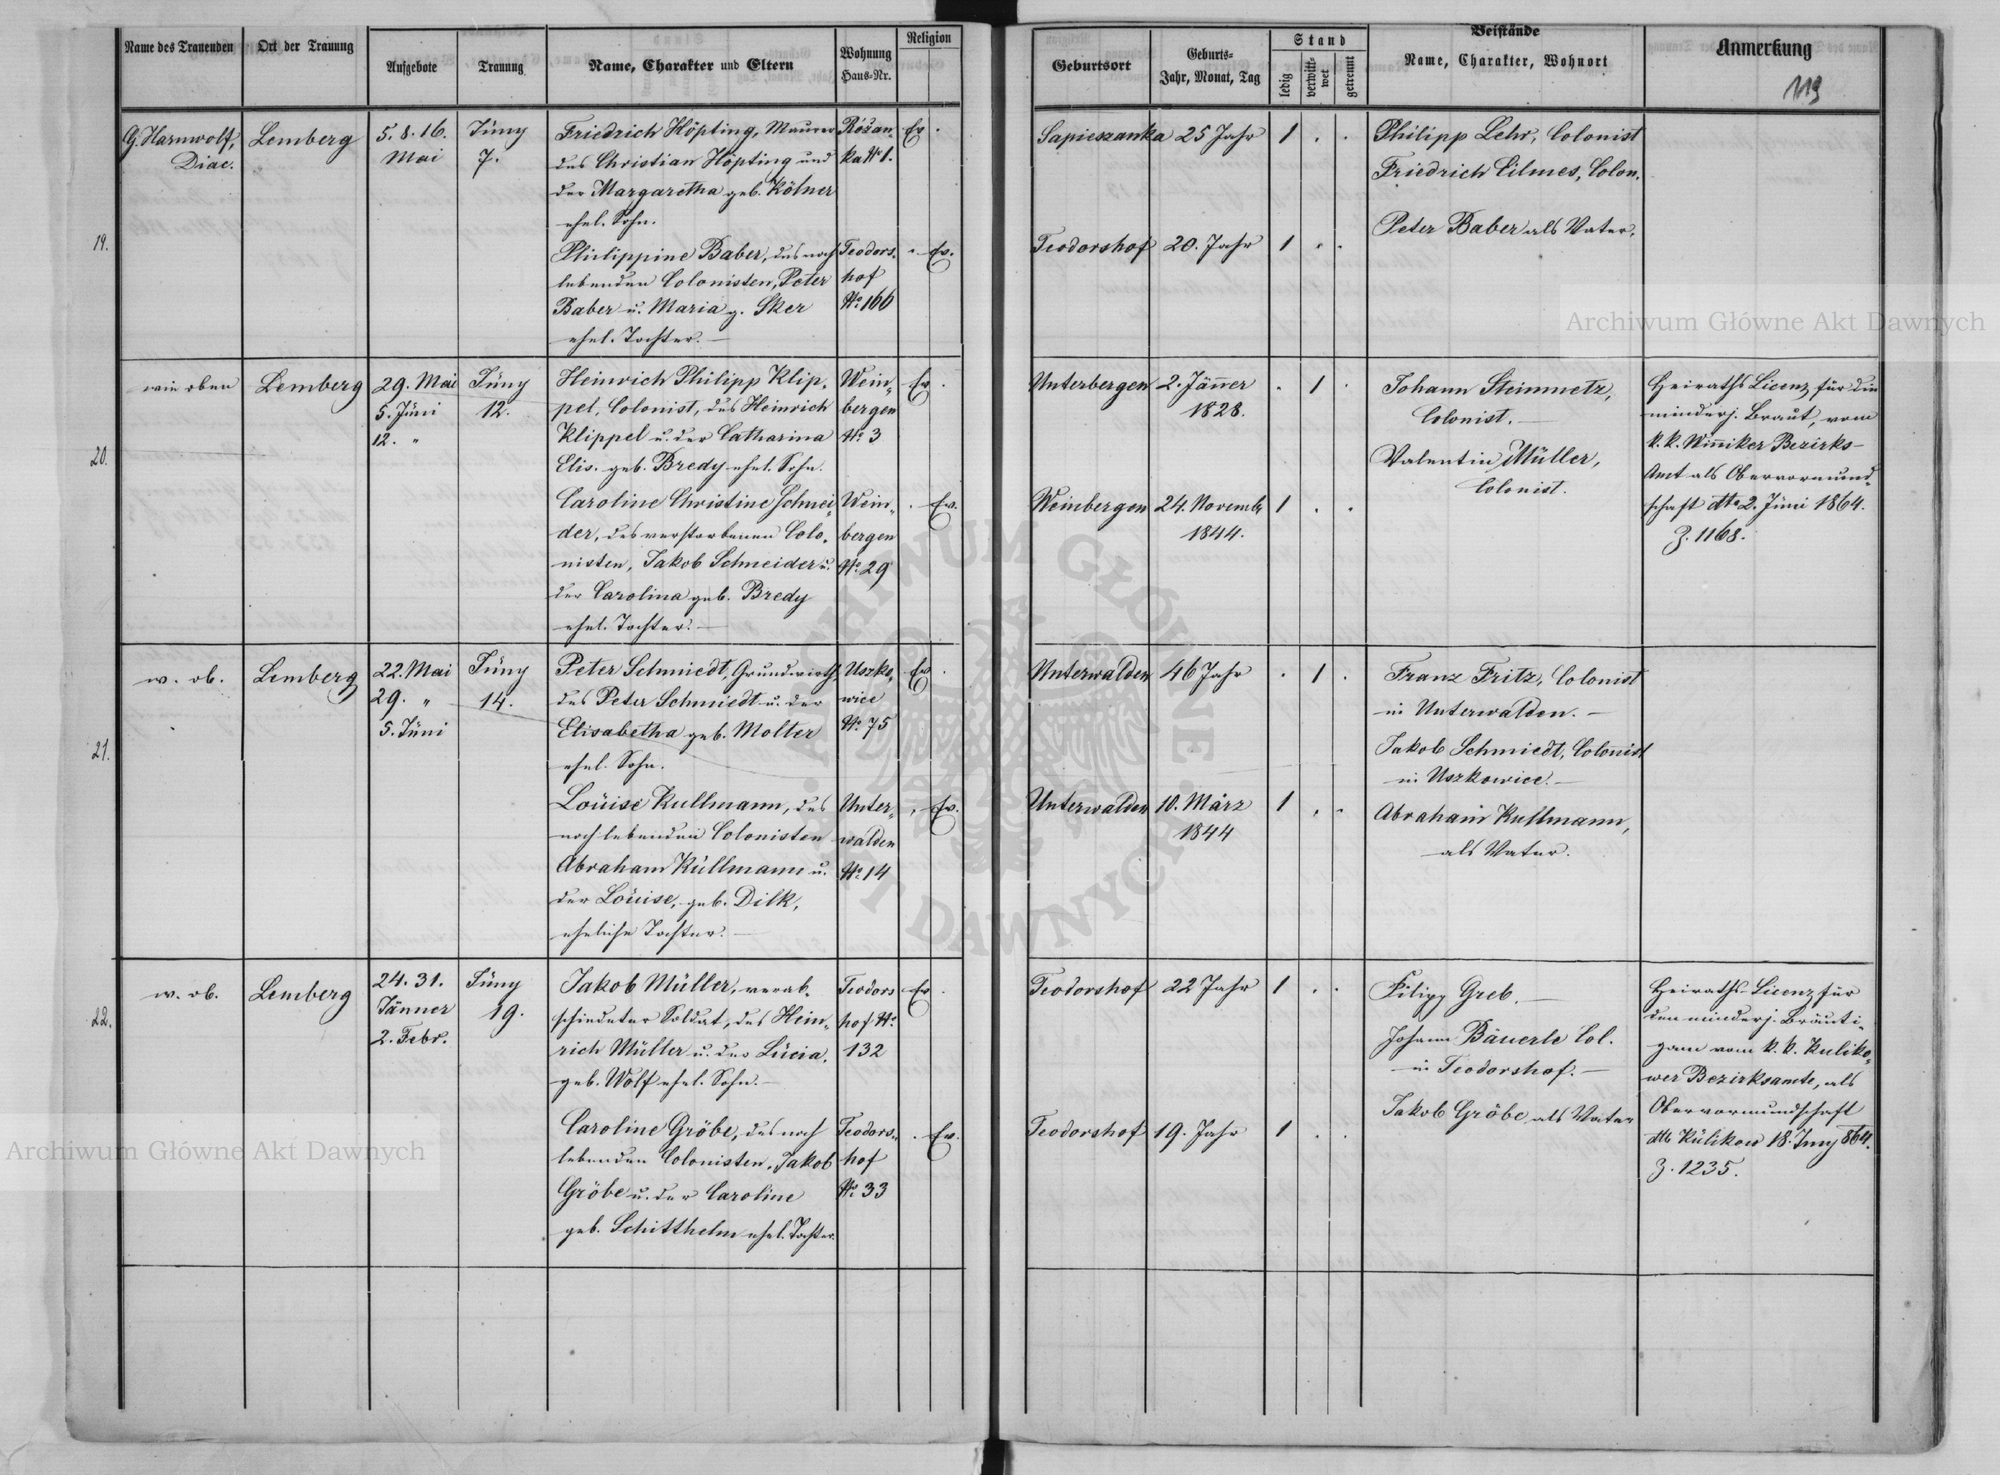 Name des Trauenden
Ort der Trauung
Aufgebote
Trauung
Name, Charakter und Eltern
Wohnung
Haus-Nr.
Religion
Geburtsort
Geburts-
Jahr, Monat, Tag
Stand
ledig
verwitt-
wet
getrennt
Beistände
Name, Charakter, Wohnort
Anmerkung
119
19.
G. Harnwolf,
Diac.
Lemberg
5. 8. 16.
Mai
Júny
7.
Friedrich Höpting, Maurer
des Christian Höpting und
der Margaretha geb. Kölner
ehel. Sohn.
Rózan
ka № 1.
Ev
Philippine Baber, des noch
lebenden Colonisten, Peter
Baber u. Maria g. Sker
ehel. Tochter. —
Teodors-
hof
№ 166
Ev.
Sapieszanka 25 Jahr 1 . .
Teodorshof 20. Jahr 1 . .
Philipp Lehr, Colonist
Friedrich Cilmes, Colon.
Peter Baber als Vater.
20.
wie oben
Lemberg
29. Mai
5. Júni
12. "
Júny
12.
Heinrich Philipp Klip-
pel, Colonist, des Heinrich
Klippel u. der Catharina
Elis. geb. Bredy ehel. Sohn.
Wein-
bergen
№ 3
Ev
Caroline Christine Schnei-
der, des verstorbenen Colo-
nisten, Jakob Schneider u.
der Carolina geb. Bredy
ehel. Tochter. —
Wein-
bergen
№ 29
Ev.
Unterbergen 2. Jänner . 1 .
1828.
Weinbergen 24. Novemb. 1 . .
1844.
Johann Steinmetz,
Colonist. —
Valentin Müller,
Colonist.
Heiraths Licenz für die
minderj. Braut, vom
k. k. Winniker Bezirks-
Amt als Obervormund-
schaft dto 2. Júni 1864.
Z. 1168.
21.
w. ob.
Lemberg
22. Mai
29. "
5. Júni
Júny
14.
Peter Schmiedt, Grundwirth,
des Peter Schmiedt u. der
Elisabetha geb. Molter
ehel. Sohn.
Uszko-
wice
№ 75
Ev
Loúise Kullmann, des
noch lebenden Colonisten
Abraham Kúllmann u.
der Loúise, geb. Dilk,
eheliche Tochter. —
Unter-
walden
№ 14
Ev.
Unterwalden 46 Jahr . 1 .
Unterwalden 10. März 1 . .
1844
Franz Fritz, Colonist
in Unterwalden. —
Jakob Schmiedt, Colonist
in Uszkowice. —
Abraham Kullmann,
als Vater.
22.
w. ob.
Lemberg
24. 31.
Jänner
2. Febr.
Júny
19.
Jakob Müller, verab-
schiedeter Soldat, des Hein-
rich Müller u. der Lúcia,
geb. Wolf ehel. Sohn. —
Teodors
hof №
132
Ev
Caroline Gröbe, des noch
lebenden Colonisten, Jakob
Gröbe u. der Caroline
geb. Schitthelm ehel. Tochter.
Teodors-
hof
№ 33
Ev.
Teodorshof 22 Jahr 1 . .
Teodorshof 19. Jahr 1 . .
Filipp Greb. —
Johann Bäuerle Col.
in Teodorshof. —
Jakob Gröbe als Vater
Heiraths-Licenz für
den minderj. Bräuti-
gam vom k. k. Kuliko-
wer Bezirksamte, als
Obervormundschaft
dto Kúlikow 18. Juny 864.
Z. 1235.
Archiwum Główne Akt Dawnych
Archiwum Główne Akt Dawnych
ARCHIWUM GŁÓWNE AKT DAWNYCH